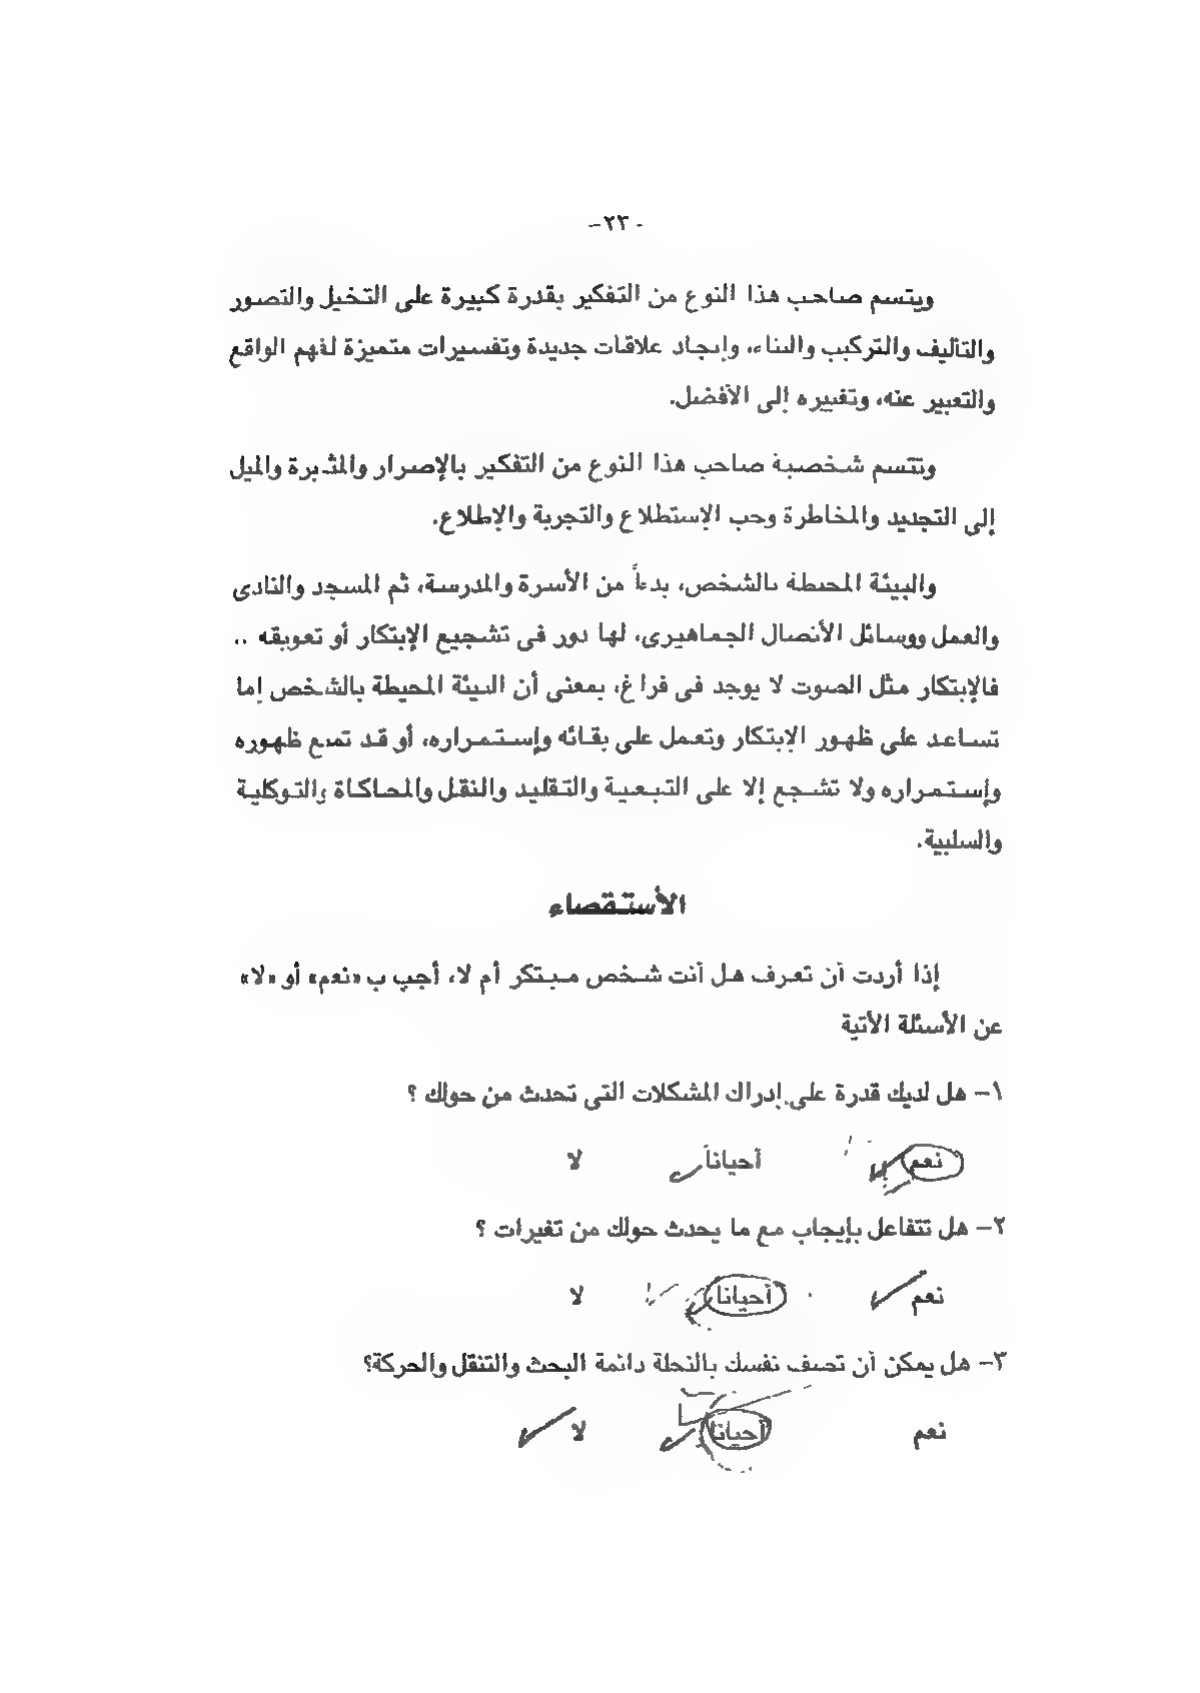 -٢٣-
ويتسم صاحب هذا النوع من التفكير بقدرة كبيرة على التخيل والتصور
والتأليف والتركيب والبناء، وإيجاد علاقات جديدة وتفسيرات متميزة لفهم الواقع
والتعبير عنه، وتغييره إلى الأفضل.
وتتسم شخصية صاحب هذا النوع من التفكير بالإصرار والمثابرة والميل
إلى التجديد والمخاطرة وحب الإستطلاع والتجربة والإطلاع.
والبيئة المحيطة بالشخص، بدءاً من الأسرة والمدرسة، ثم المسجد والنادى
والعمل ووسائل الأتصال الجماهيرى، لها دور فى تشجيع الإبتكار أو تعويقه ..
فالإبتكار مثل الصوت لا يوجد فى فراغ، بمعنى أن البيئة المحيطة بالشخص إما
تساعد على ظهور الإبتكار وتعمل على بقائه وإستمراره، أو قد تمنع ظهوره
وإستمراره ولا تشجع إلا على التبعية والتقليد والنقل والمحاكاة والتوكلية
والسلبية.
الأستقصاء
إذا أردت أن تعرف هل أنت شخص مبتكر أم لا، أجب ب «نعم» أو «لا»
عن الأسئلة الأتية
١- هل لديك قدرة على إدراك المشكلات التى تحدث من حولك ؟
نعم أحياناً لا
٢- هل تتفاعل بإيجاب مع ما يحدث حولك من تغيرات ؟
نعم أحيانا لا
٣- هل يمكن أن تصف نفسك بالنحلة دائمة البحث والتنقل والحركة؟
نعم أحيانا لا